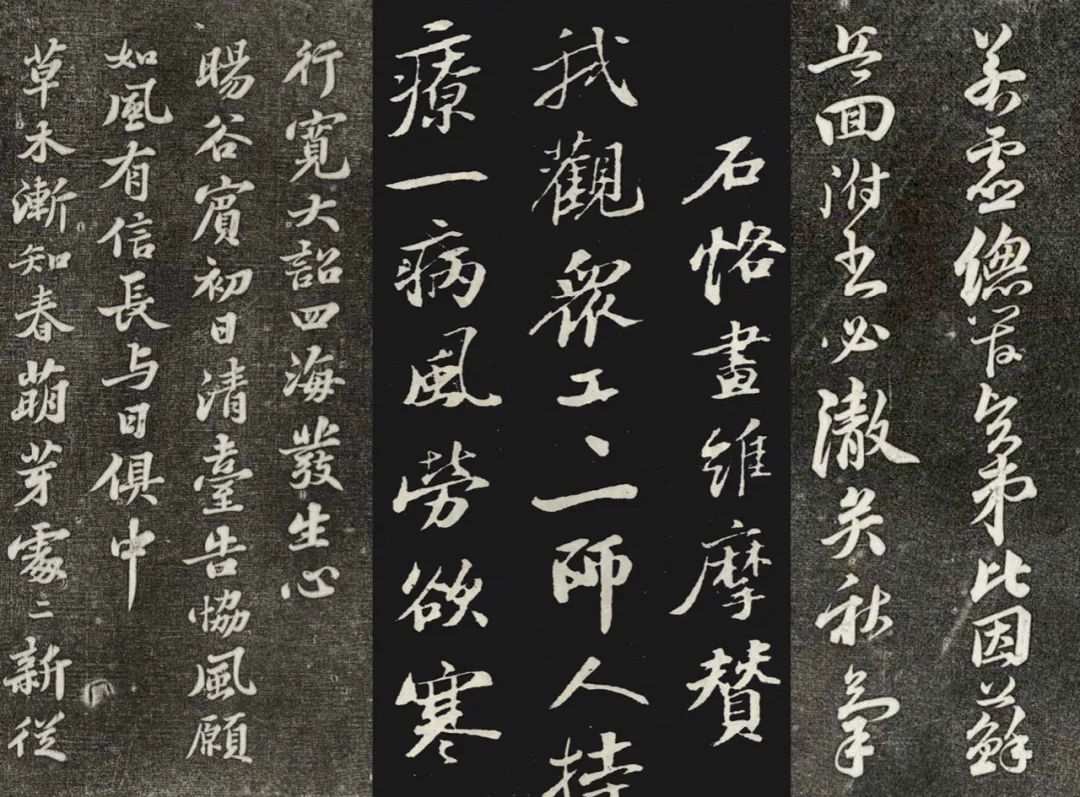 若虚總管此因蘇
面附必澈关秋氣
石恪畫維摩贊
我觀衆工、一師人持
療一病風勞欲寒
行寬大詔四海發生心
暘谷賓初日清臺告協風願
如風有信長与日俱中
草木漸知春萌芽處二新從